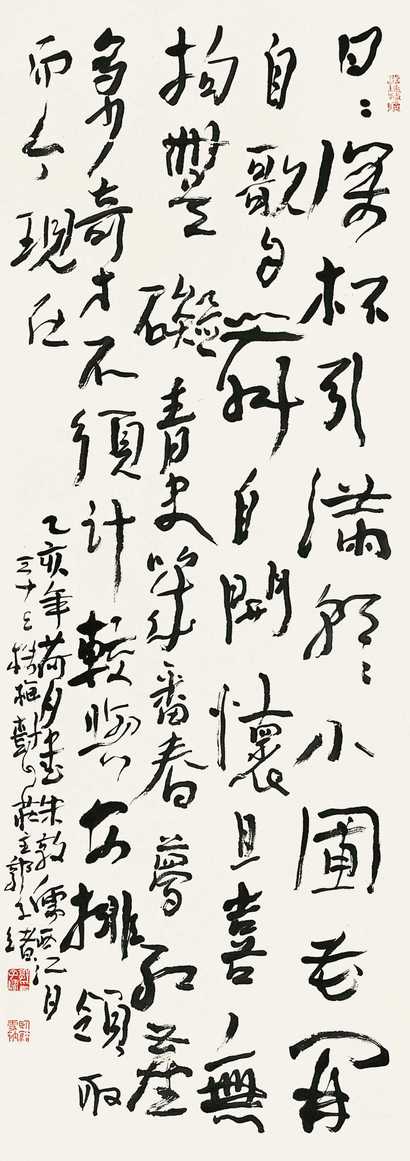 日日深杯引滿朝朝小圃花開
自歌自舞自開懷且喜無
拘無礙青史幾番春夢紅塵
多少奇才不須計較與安排領取
而今現在
乙亥年荷月書朱敦儒西江月
三十三梅莊主郭子緒